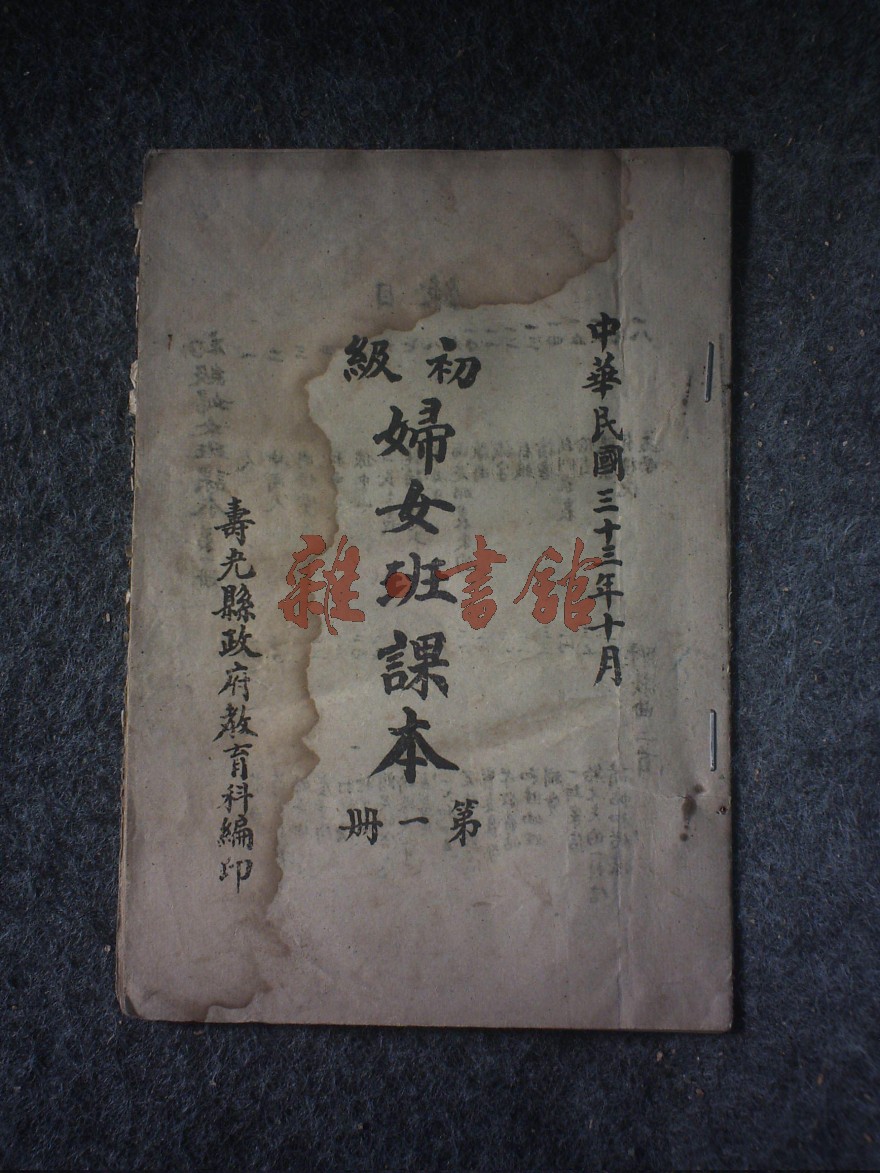 中華民國三十三年十月
初級
婦女班課本
第一册
壽光縣政府教育科編印
雜·書館